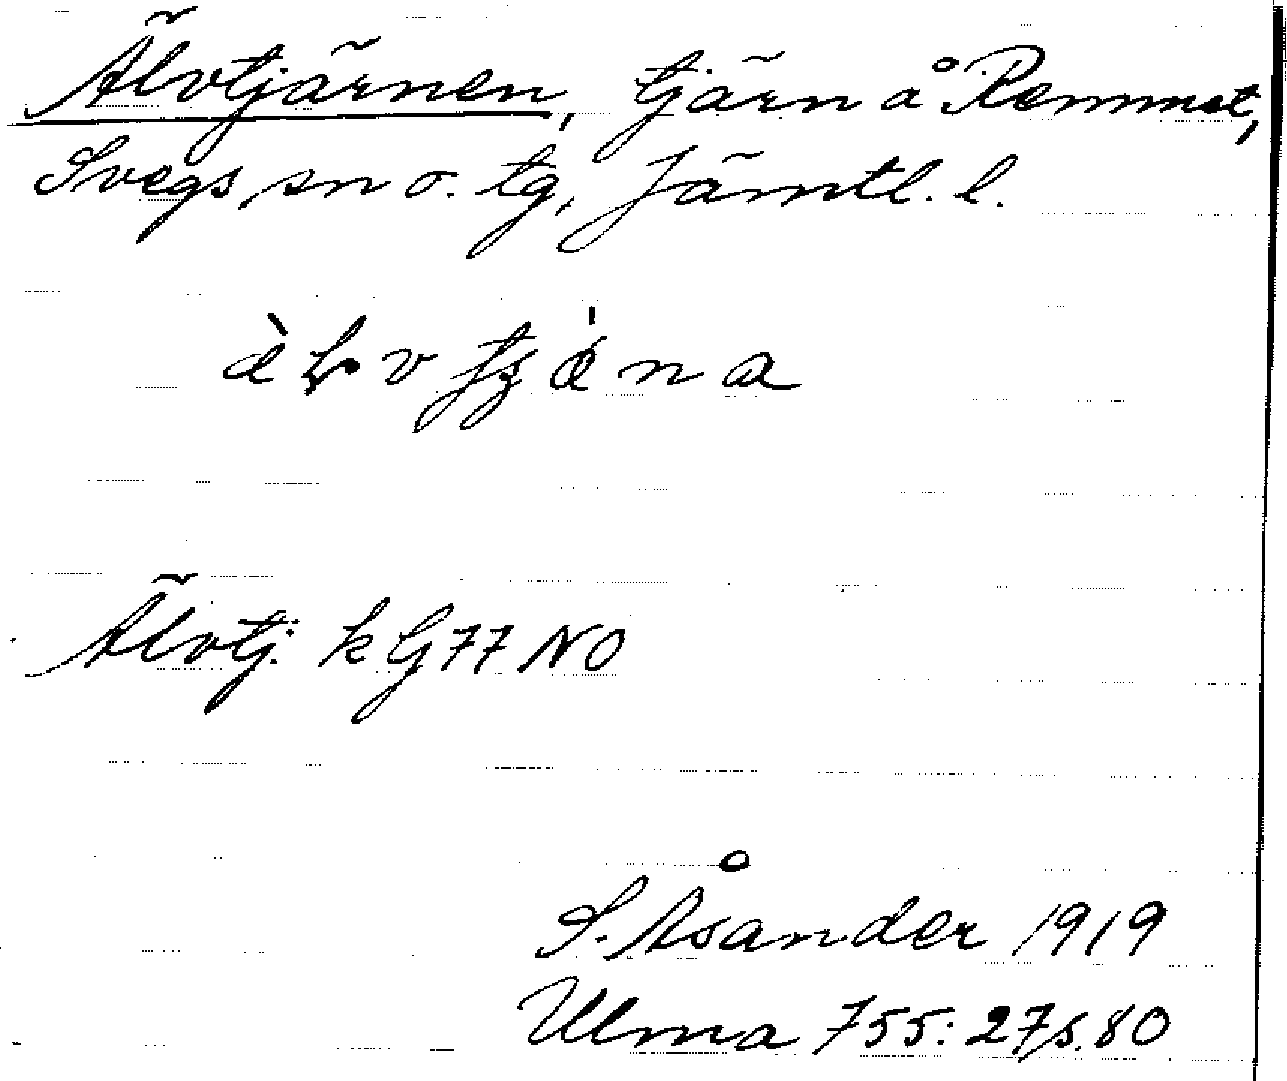 Älvtjärnen, tjärn å Remmet,
Svegs sn o. tg, Jämtl. l.
Älvtj. k G77 NO
S. Åsander 1919
Ulma 755: 27 s. 80